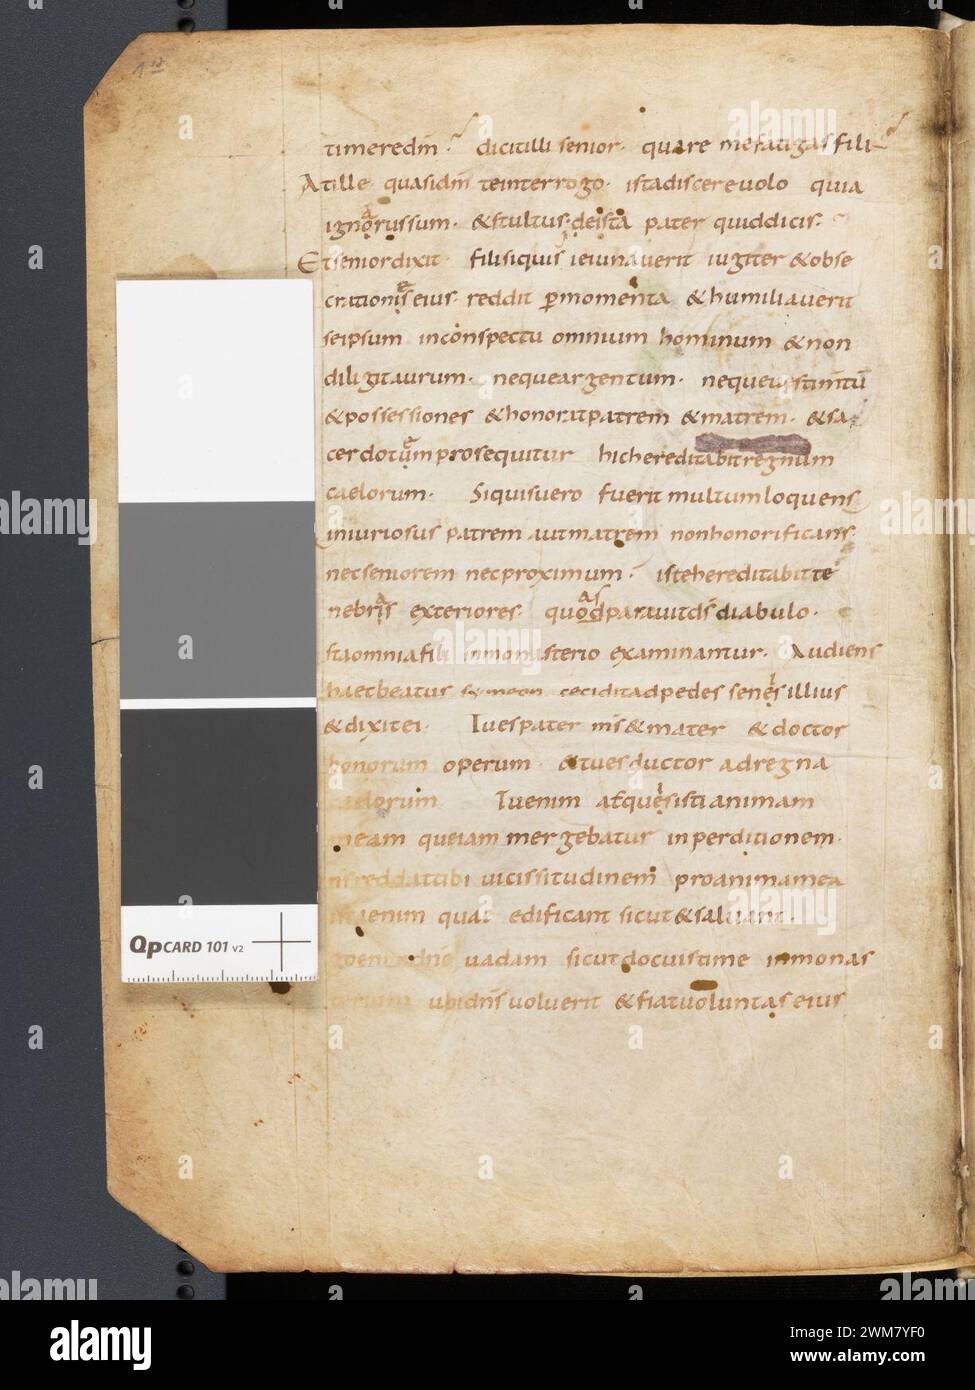 timeredm̄. dicitilli senior. quare mefatigas fili
Atille quasidm̄ teinterrogo. istadiscereuolo quia
ignorussum. &stultus. deista pater quiddicis.
Etseniordixit. filisiquis ieiunauerit iugiter &obse
crationis eius. reddit ꝑmomenta &humiliauerit
seipsum inconspectu omnium hominum &non
diligitaurum. nequeargentum. neque
&possessiones &honoratpatrem &matrem. &sa
cerdotum prosequitur hichereditabitregnum
caelorum. Siquisuero fuerit multumloquens
iniuriosus patrem autmatrem nonhonorificans.
necseniorem necproximum. istehereditabitte
nebris exteriores. quod parauitds̄ diabulo.
istaomniafili inmonasterio examinantur. Audiens
haecbeatus symeon ceciditadpedes senis illius
&dixitei. Tuespater ms̄&mater &doctor
bonorum operum. &tuesductor adregna
caelorum Tuenim adquesisti animam
meam queiam mergebatur inperditionem.
reddattibi uicissitudinem proanimamea
enim quae edificant sicut&saluant.
uadam sicutdocuistime inmonas
ubidns̄ uoluerit &fiatuoluntas eius
QPCARD 101 v2
alamy
Image ID: 2WM7YF0
www.alamy.com